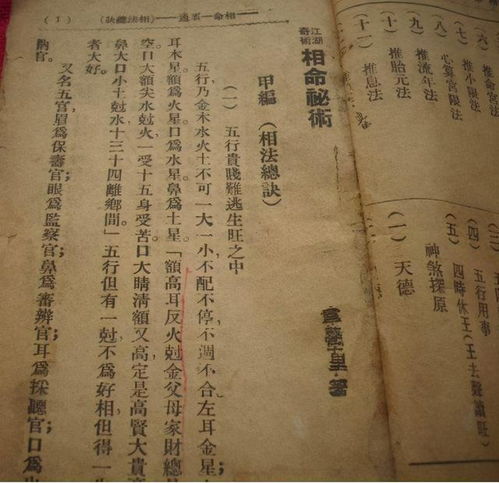 (六) 推小
(七) 心算宮限法
(八) 推流年法
(九) 推胎元法
(十一) 推息法
(四) 五行用事
(五) 四時休王(王去聲讀旺)
神煞探原
(一) 天德
江湖奇術 相命祕術
著
甲編(相法總訣)
(一) 五行貴賤難逃生旺之中
五行乃金木水火土不可一大一小,不配不停,不調不合,左耳金星,
耳木星。額爲火星。口爲水星。鼻爲土星。「額高耳反火尅金父母家財總
空。口大額尖水尅火,一受十五身受苦。口大睛清額又高定是高賢大貴
鼻大口小土尅水十三十四離鄉間」五行但有一尅,不爲好相但得一
者大好。
又名五官,眉爲保壽官;眼爲監察官;鼻爲審辨官;耳爲採聽官;口爲出
納官。
相命一掌通——(相法總訣) (1)